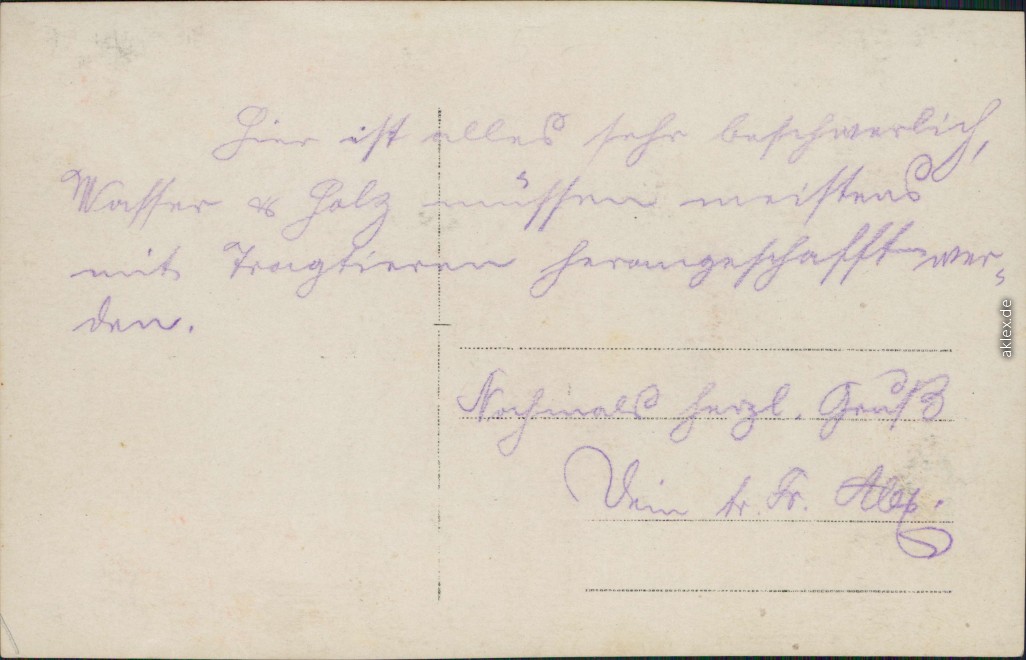 Hier ist alles sehr beschwerlich,
Wasser & Holz müssen meistens
mit Tragtieren herangeschafft wer-
den.
Nochmals herzl. Gruß
Dein tr. Fr. Alex.
aklex.de